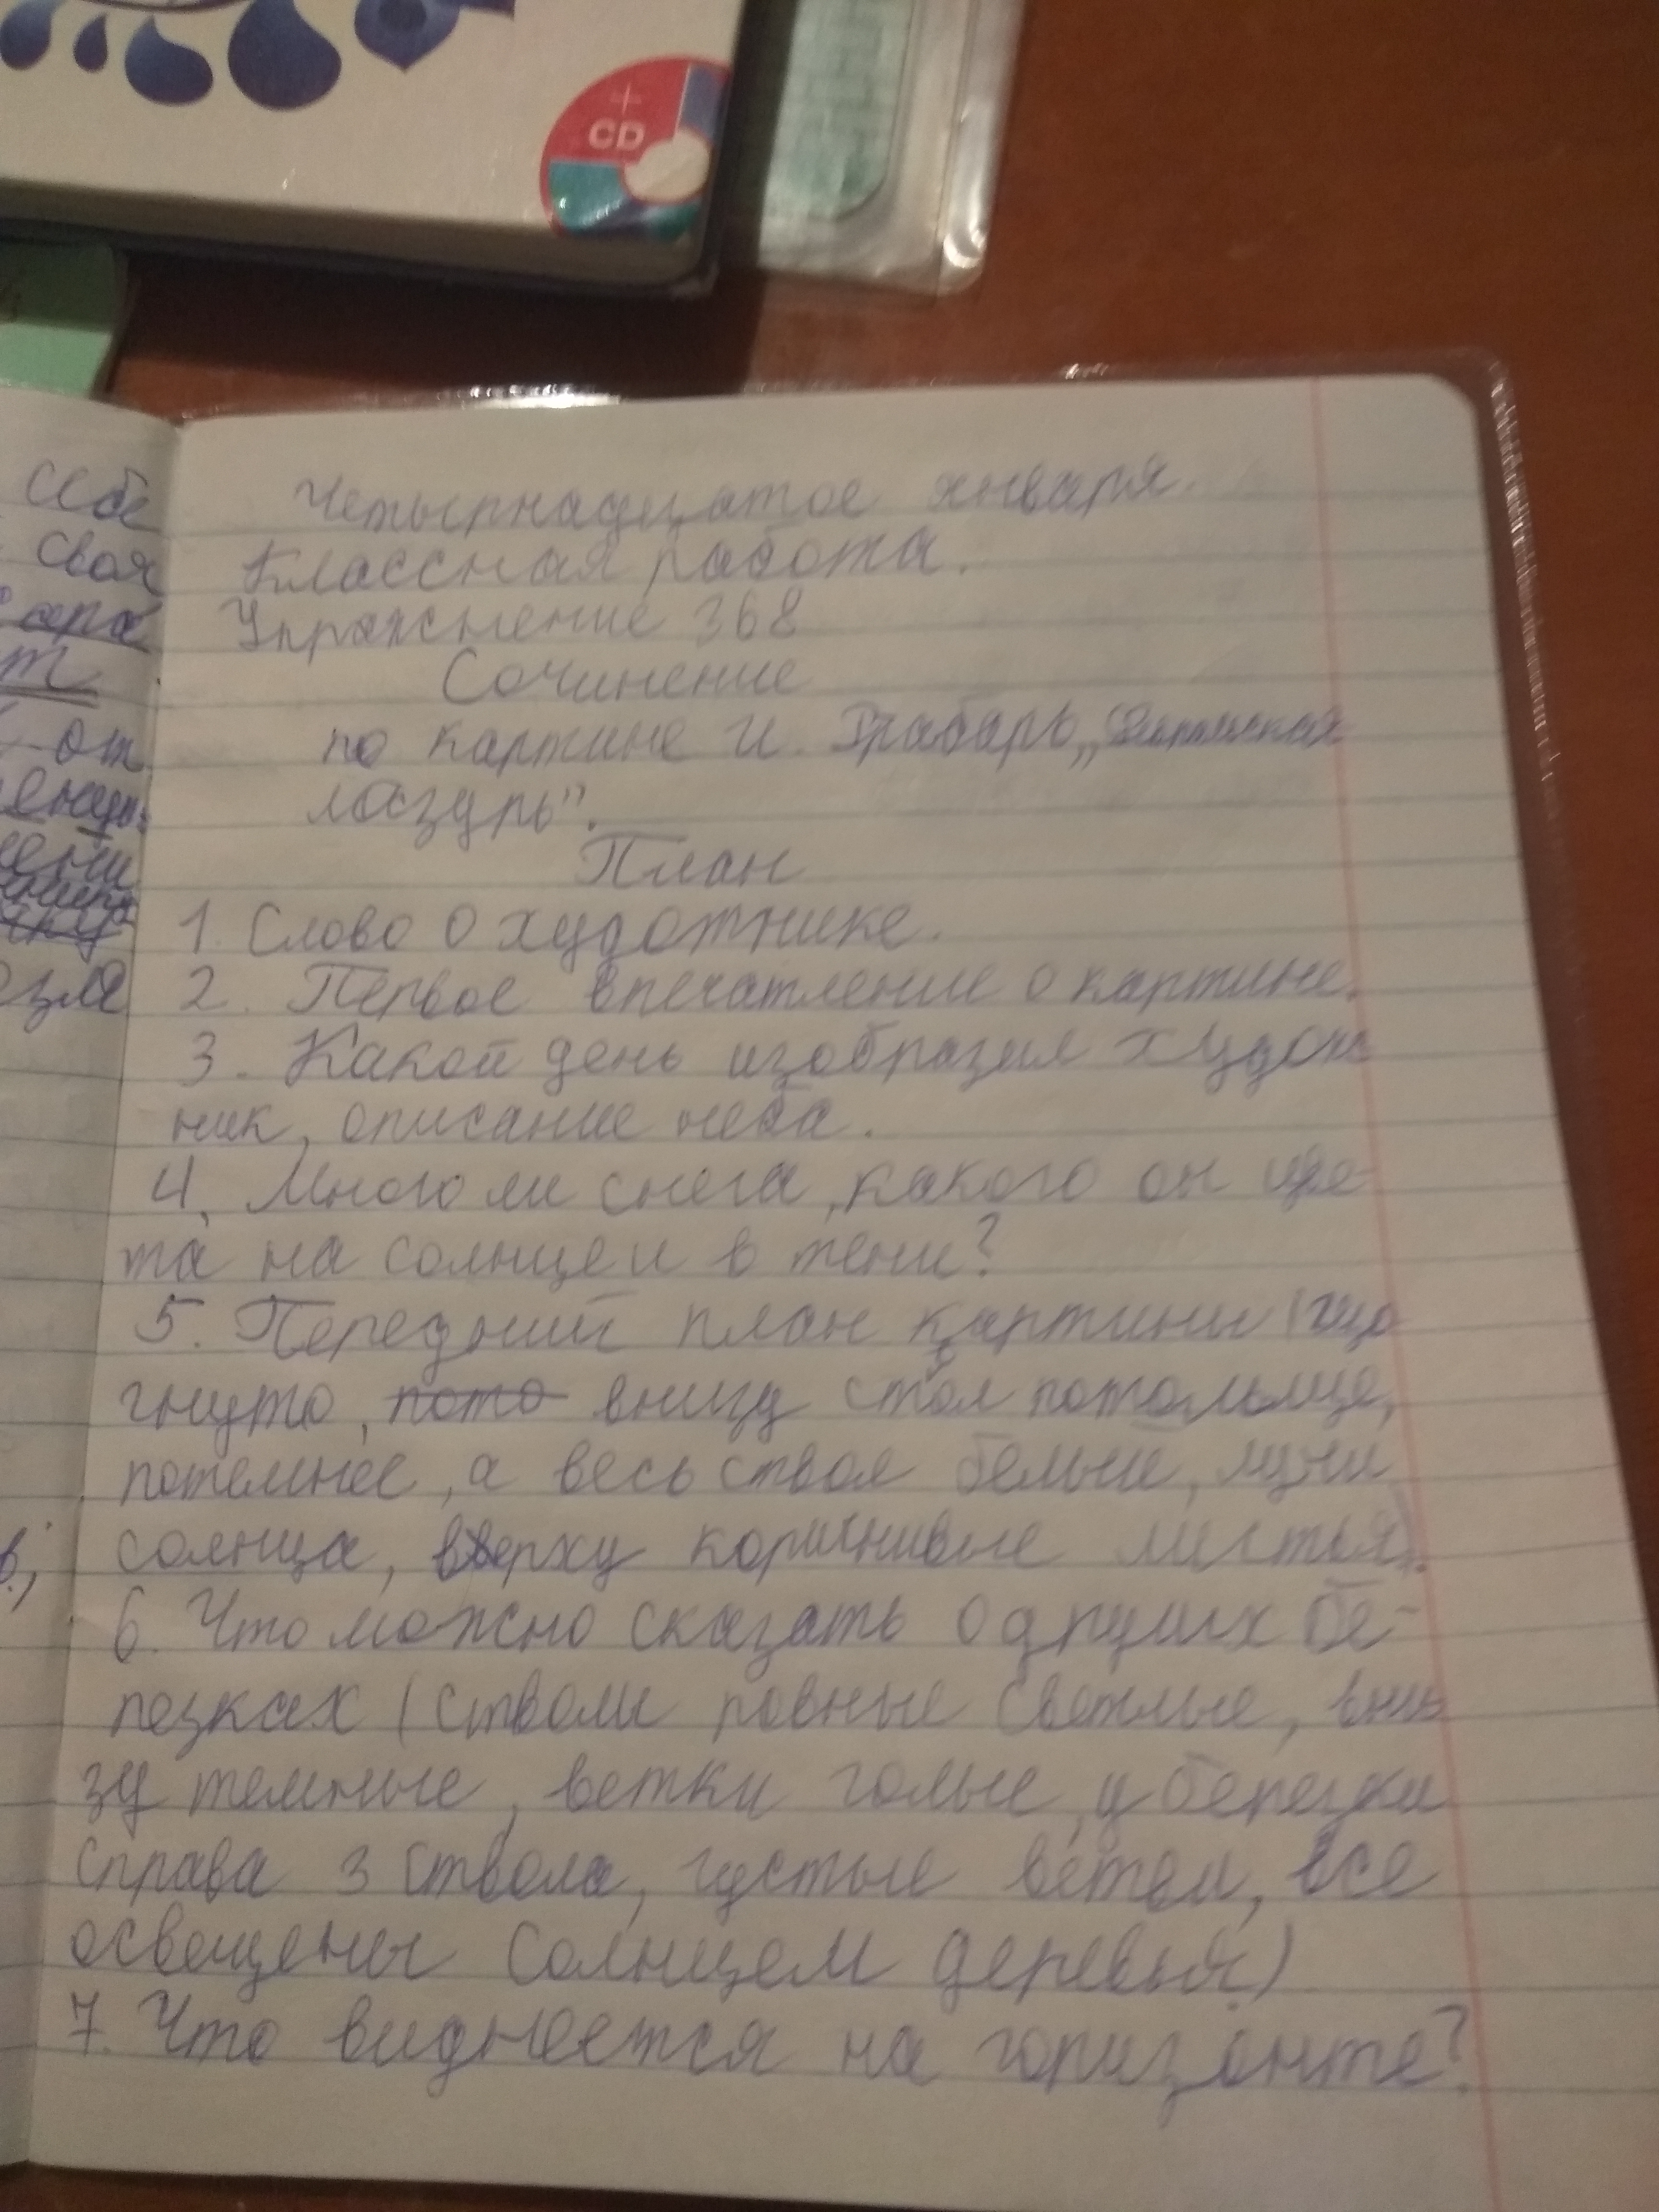 +
CD
себе
своя
сера
т
от
зле
в,
Четырнадцатое января.
Классная работа.
Упражнение 368
Сочинение
по картине И. Грабарь „
лазурь".
План
1. Слово о художнике.
2. Первое впечатление о картине.
3. Какой день изобразил худож
ник, описание неба.
4. Много ли снега, какого он цве-
та на солнце и в тени?
5. Передний план картины (
гнуто, пото внизу ствол потольще,
потемнее, а весь ствол белый, лучи
солнца, вверху коричнивые листья).
6. Что можно сказать о других бе-
резках (стволы ровные светлые, вни
зу темные, ветки голые, у березки
справа 3 ствола, густые ветви, все
освещены солнцем деревья)
7. Что виднеется на горизонте?